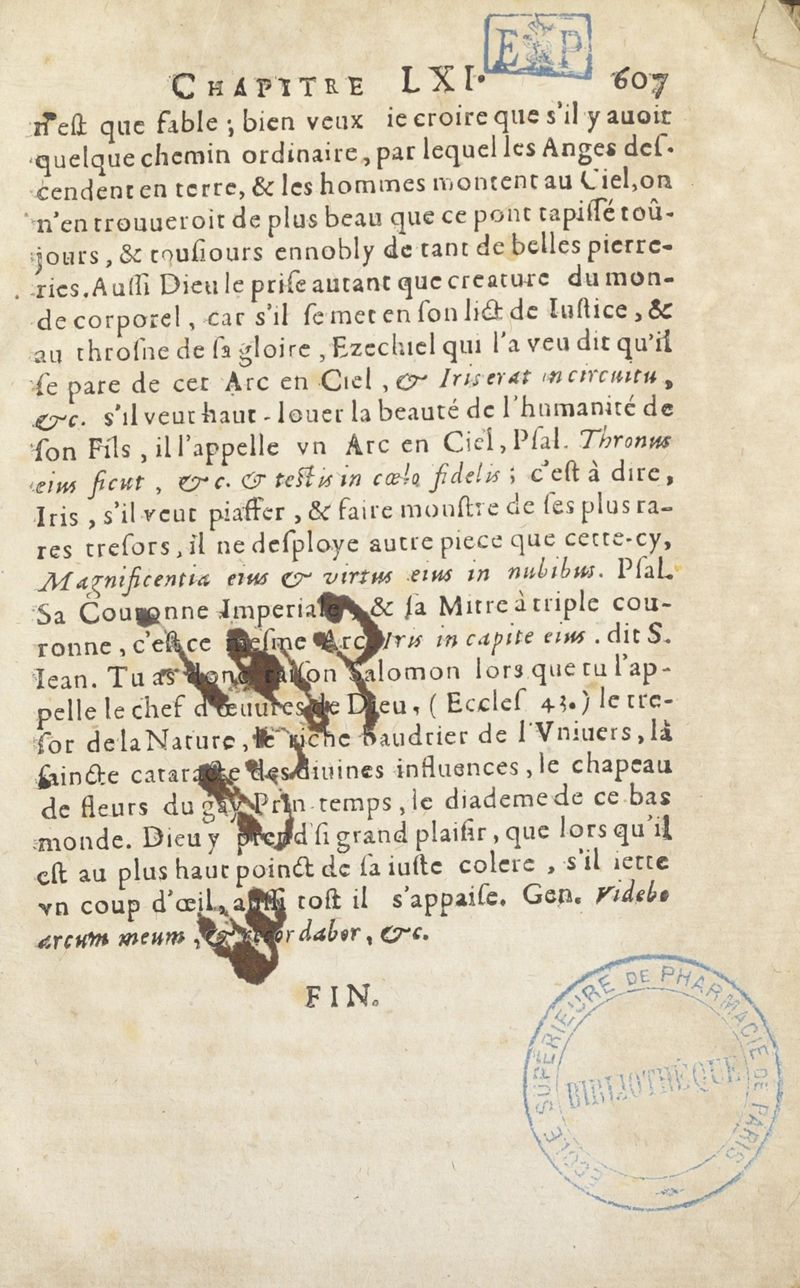 CHAPITRE LXI. 607
n'eſt que fable ; bien veux ie croire que s'il y auoit
quelque chemin ordinaire, par lequel les Anges deſ-
cendent en terre, & les hommes montent au Ciel, on
n'en trouueroit de plus beau que ce pont tapiſſé toû-
jours, & touſiours ennobly de tant de belles pierre-
ries. Auſſi Dieu le priſe autant que creature du mon-
de corporel, car s'il ſe met en ſon lict de Iuſtice, &
au throſne de ſa gloire, Ezechiel qui l'a veu dit qu'il
ſe pare de cet Arc en Ciel, & Iris erat in circuitu,
&c. s'il veut haut-louer la beauté de l'humanité de
ſon Fils, il l'appelle vn Arc en Ciel, Pſal. Thronus
eius ſicut, &c. & teſtis in cœlo fidelis ; c'eſt à dire,
Iris, s'il veut piaffer, & faire monſtre de ſes plus ra-
res treſors, il ne deſploye autre piece que cette-cy,
Magnificentia eius & virtus eius in nubibus. Pſal.
Sa Couronne Imperiale, & ſa Mitre à triple cou-
ronne, c'eſt ce meſme Arc, Iris in capite eius. dit S.
Iean. Tu as donc raiſon Salomon lors que tu l'ap-
pelle le chef d'œuures de Dieu, (Eccleſ 43.) le tre-
ſor de la Nature, le riche Baudrier de l'Vniuers, la
ſaincte cataracte des diuines influences, le chapeau
de fleurs du gay Prin-temps, le diademe de ce bas
monde. Dieu y prend ſi grand plaiſir, que lors qu'il
eſt au plus haut poinct de ſa iuſte colere, s'il iette
vn coup d'œil, auſſi toſt il s'appaiſe. Gen. Videbo
arcum meum, & recordabor, &c.
FIN.
ECOLE SUPÉRIEURE DE PHARMACIE DE PARIS
BIBLIOTHÈQUE